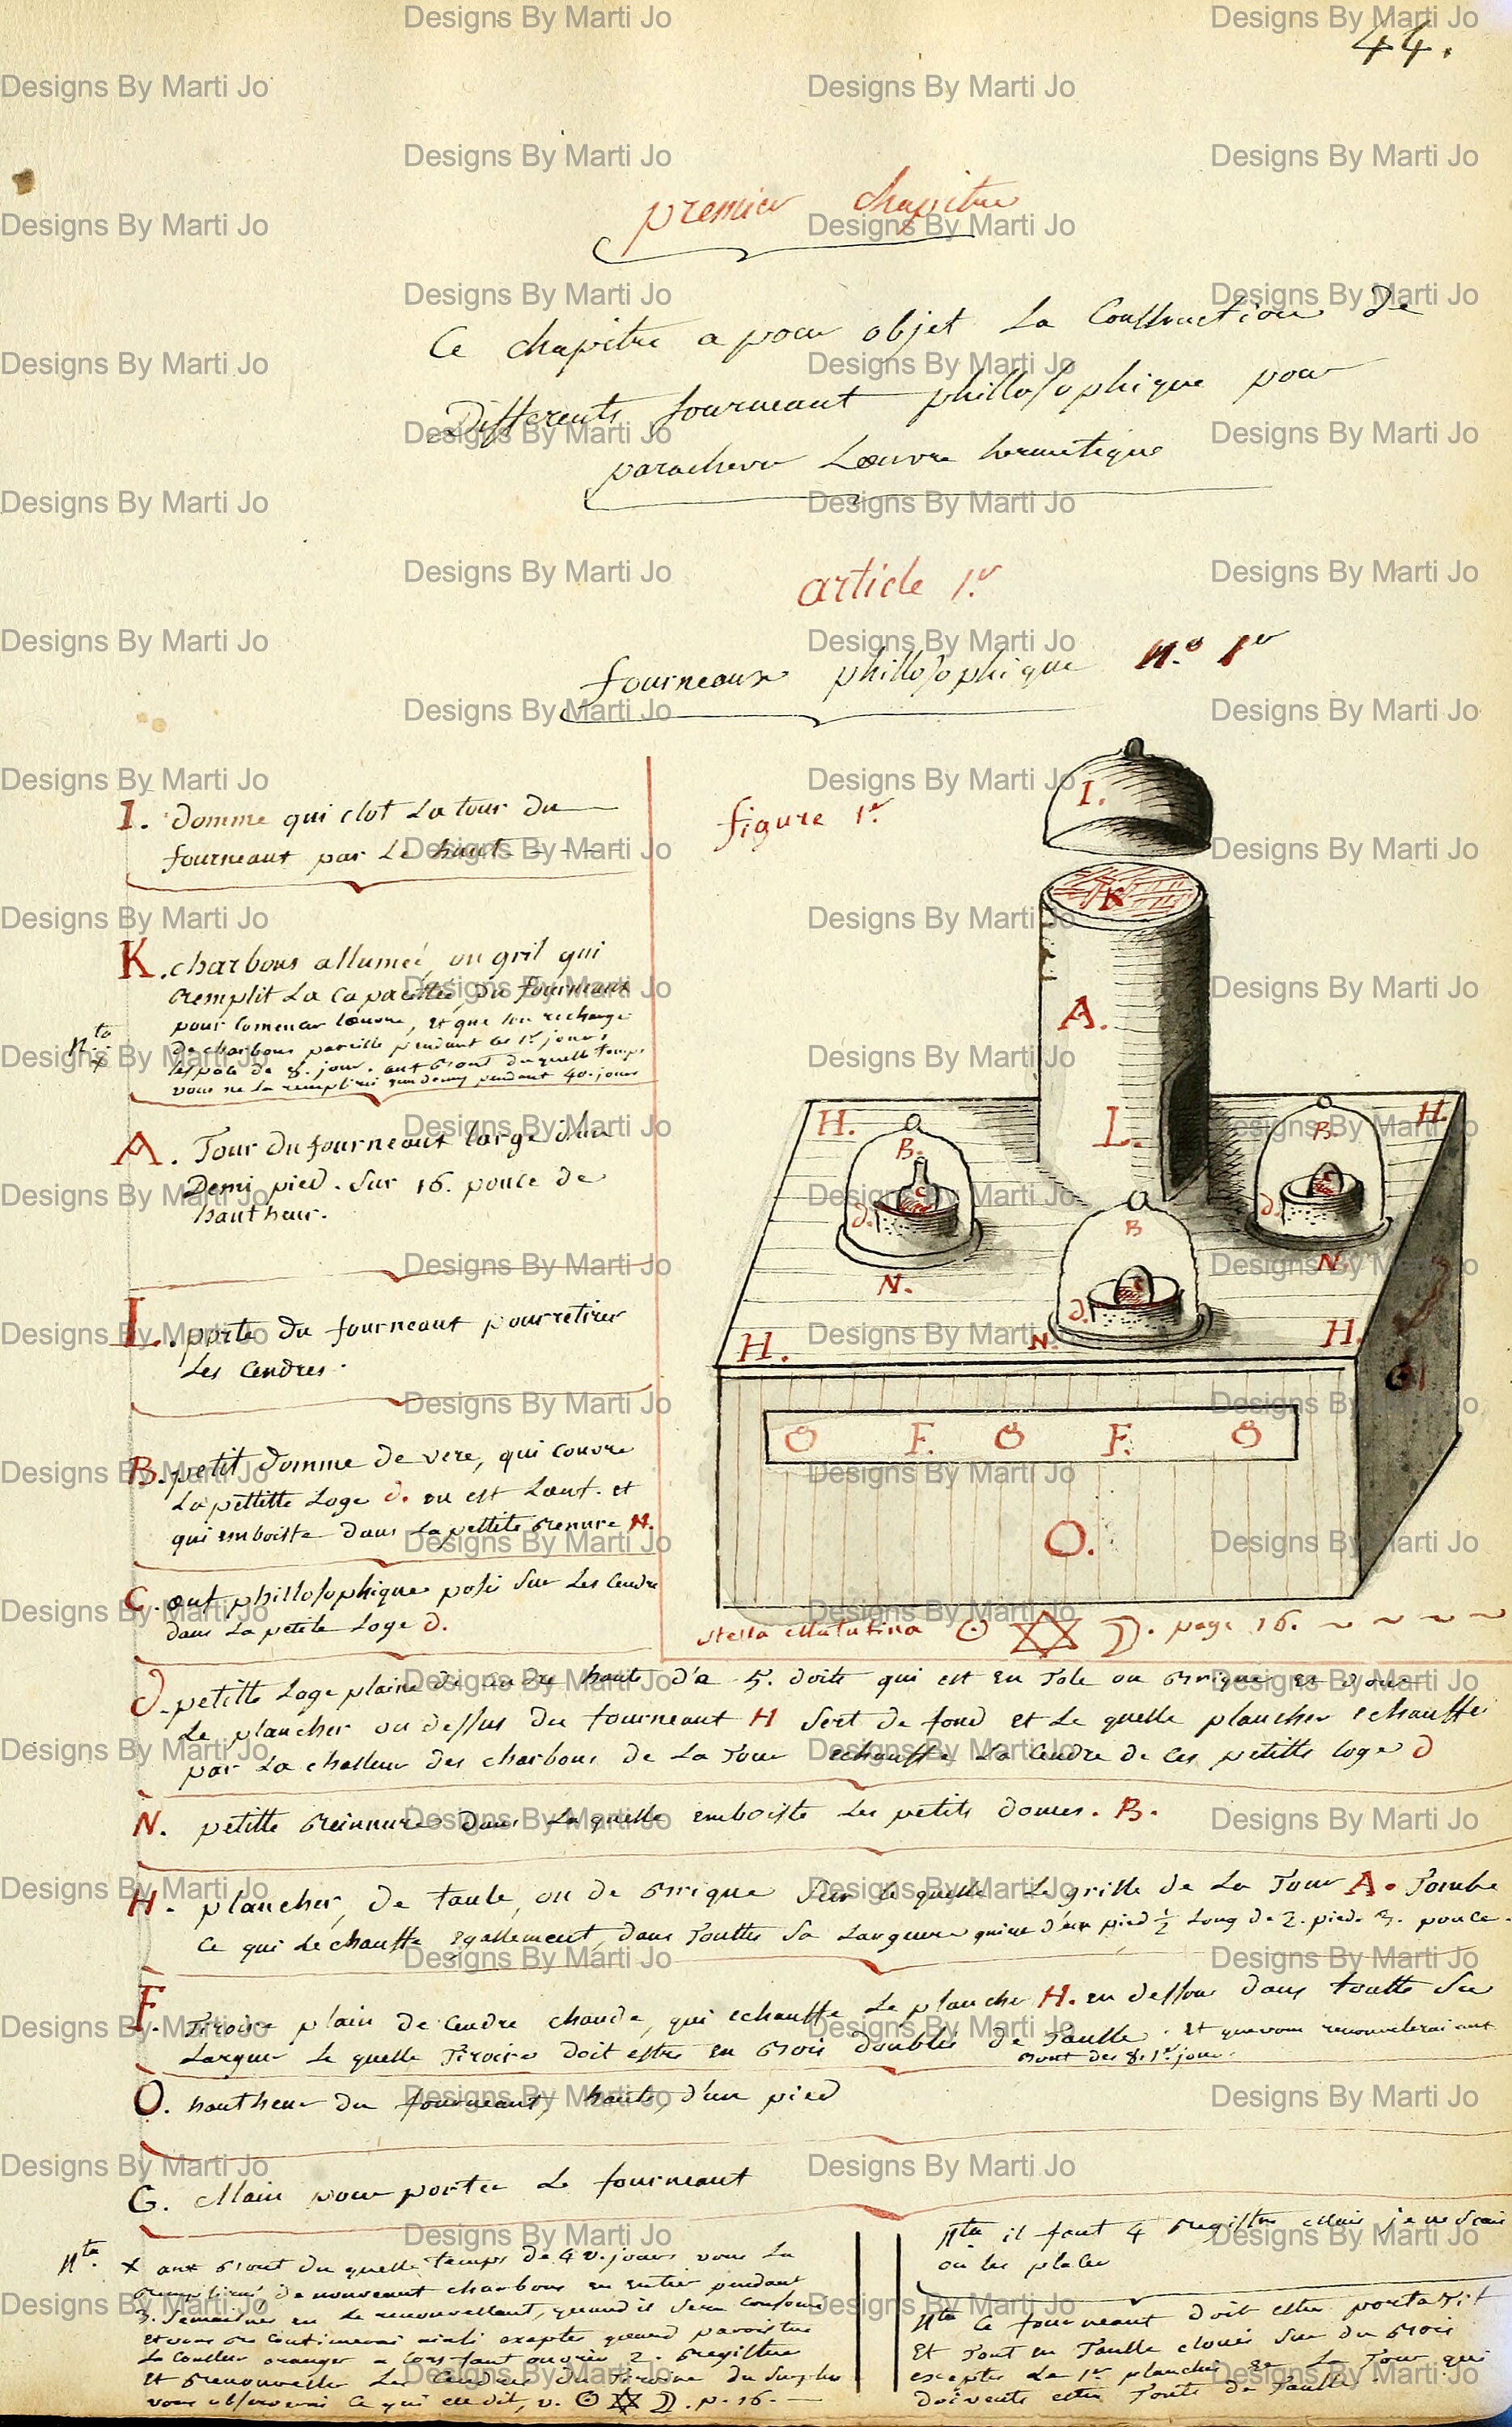 44.
premier chapitre
Ce chapitre a pour objet La Construction de
Differents fourneaut phillosophique pour
parachever Lœuvre hermetique
article 1.er
fourneaux phillosophique N.o 1er
figure 1.er
I. domme qui clot La tour du
fourneaut par Le haut
K. charbons allumeé, ou gril qui
remplit La Capacitée du fourneaut
pour Comencer Lœuvre, et que lon recharge
de charbons pareille pendant les 1.er jours
lespace de 8. jour. duquelle temps
vous ne La pendant 40. jours
N.ta x
A. Tour du fourneaut large d'un
Demi pied. Sur 16. pouce de
hautheur.
L. porte du fourneaut pour retirer
Les Cendres.
B. petit domme de vere, qui couvre
La pettitte Loge d. ou est Lœuf. et
qui emboiste dans La pettite renure N.
C. œuf phillosophique posé sur Les Cendre
dans La petite Loge d.
I.
K
A.
L.
H.
H.
H.
H.
B.
C
d.
N.
B.
C
d.
N.
B
C
d.
N.
G
O F. O F. O
O.
Stella Matutina ☉ ✡ ☽. page 16. ~ ~ ~ ~
d. petitte Loge plaine de cendre haute d'n 5. doits qui est en Tole ou Brique et dont
Le plancher ou dessus du fourneaut H sert de fond et Le quelle plancher echauffé
par La challeur des charbons de La Tour echauffe La Cendre de Ces petitte loge d
N. petitte dans La quelle emboiste Les petits domes. B.
H. plancher, de taule, ou de Brique Sur le quelle Le grille de La Tour A. Tombe
Ce qui Le chauffe egallement, dans Toutte Sa Largeure d'un pied ½ Long de 2. pied. 3. pouce.
F. Tiroire plain de Cendre chaude, qui echauffe Le plancher H. en dessous dans toutte Sa
Largeur Le quelle Tiroire doit estre en Bois doublée de Taulle. Et que vous renouvelerai
des 8. 1.er jour.
O. hautheur du fourneaut, haute, d'un pied
G. Main pour porter Le fourneaut
N.ta x du quelle temps de 40. jours vous La
de nouveaut charbons en entier pendant
3. Semaines en Le renouvellant, quand il Sera Consomé
et vous Continuerai ainsi exepter quand paroistra
La Coulleur oranger ouvrir 2. Registre
Et Renouveller Les Cendres du Tiroire
vous observerai Ce qui est dit, v. ☉ ✡ ☽. p. 16.
Nta il faut 4 Registre Mais je ne scais
où les placer
Nta Ce fourneaut doit estre portatif
Et Tout en Taulle cloué Sur du Bois
excepter Le 1er plancher et La Tour qui
doivents estre Touts de Taulle.
Designs By Marti Jo